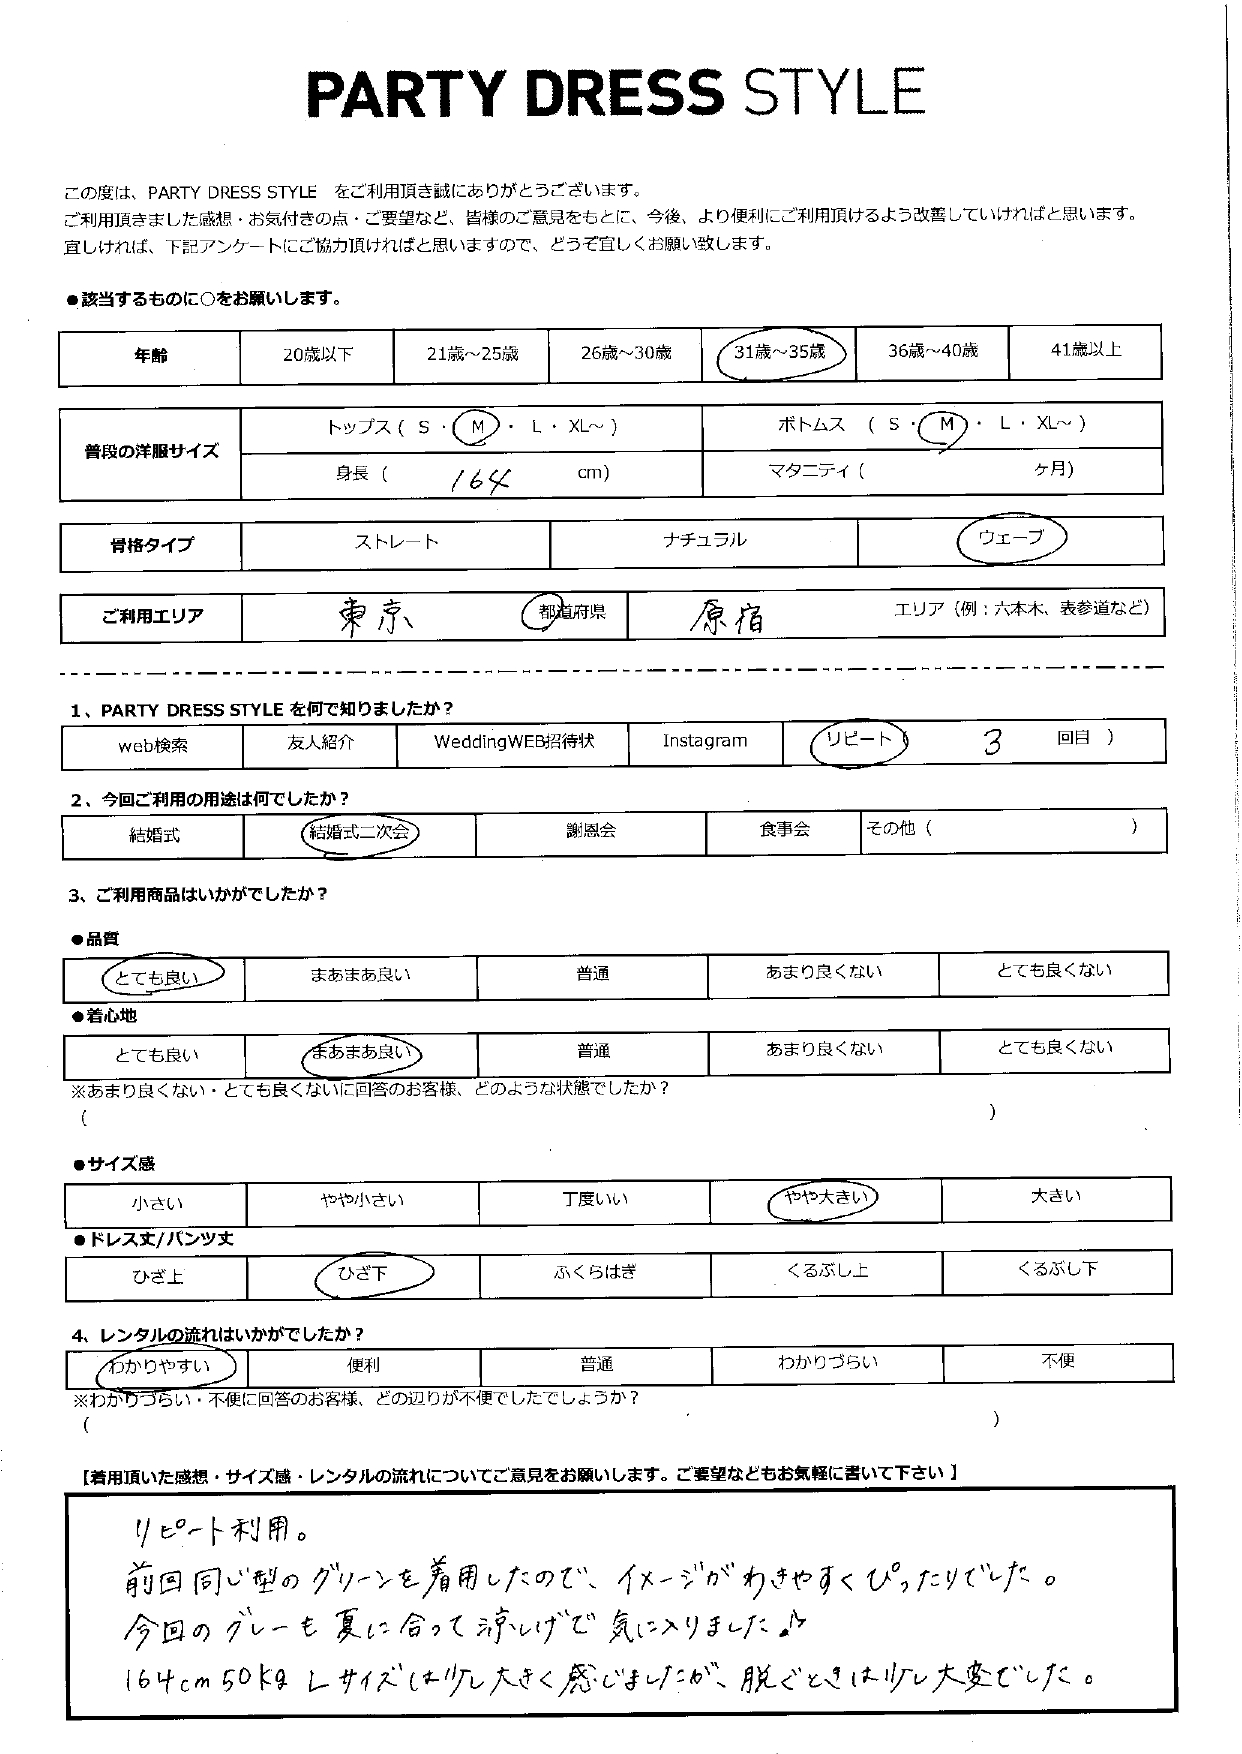 PARTY DRESS STYLE
この度は、PARTY DRESS STYLE をご利用頂き誠にありがとうございます。
ご利用頂きました感想・お気付きの点・ご要望など、皆様のご意見をもとに、今後、より便利にご利用頂けるよう改善していければと思います。
宜しければ、下記アンケートにご協力頂ければと思いますので、どうぞ宜しくお願い致します。
●該当するものに○をお願いします。
年齢 20歳以下 21歳～25歳 26歳～30歳 31歳～35歳 36歳～40歳 41歳以上
普段の洋服サイズ
トップス ( S ・ M ・ L ・ XL～ ) ボトムス ( S ・ M ・ L ・ XL～ )
身長 ( 164 cm) マタニティ ( ヶ月)
骨格タイプ ストレート ナチュラル ウェーブ
ご利用エリア 東京 都道府県 原宿 エリア（例：六本木、表参道など）
1、PARTY DRESS STYLE を何で知りましたか？
web検索 友人紹介 WeddingWEB招待状 Instagram リピート ( 3 回目 )
2、今回ご利用の用途は何でしたか？
結婚式 結婚式二次会 謝恩会 食事会 その他 ( )
3、ご利用商品はいかがでしたか？
●品質
とても良い まあまあ良い 普通 あまり良くない とても良くない
●着心地
とても良い まあまあ良い 普通 あまり良くない とても良くない
※あまり良くない・とても良くないに回答のお客様、どのような状態でしたか？
( )
●サイズ感
小さい やや小さい 丁度いい やや大きい 大きい
●ドレス丈/パンツ丈
ひざ上 ひざ下 ふくらはぎ くるぶし上 くるぶし下
4、レンタルの流れはいかがでしたか？
わかりやすい 便利 普通 わかりづらい 不便
※わかりづらい・不便に回答のお客様、どの辺りが不便でしたでしょうか？
( )
【着用頂いた感想・サイズ感・レンタルの流れについてご意見をお願いします。ご要望などもお気軽に書いて下さい 】
リピート利用。
前回同じ型のグリーンを着用したので、イメージがわきやすくぴったりでした。
今回のグレーも夏に合って涼しげで気に入りました♪
164cm 50kg Lサイズは少し大きく感じましたが、脱ぐときは少し大変でした。